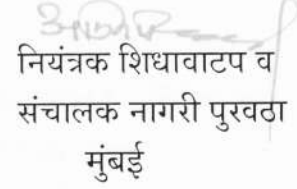 नियंत्रक शिधावाटप व
संचालक नागरी पुरवठा
मुंबई